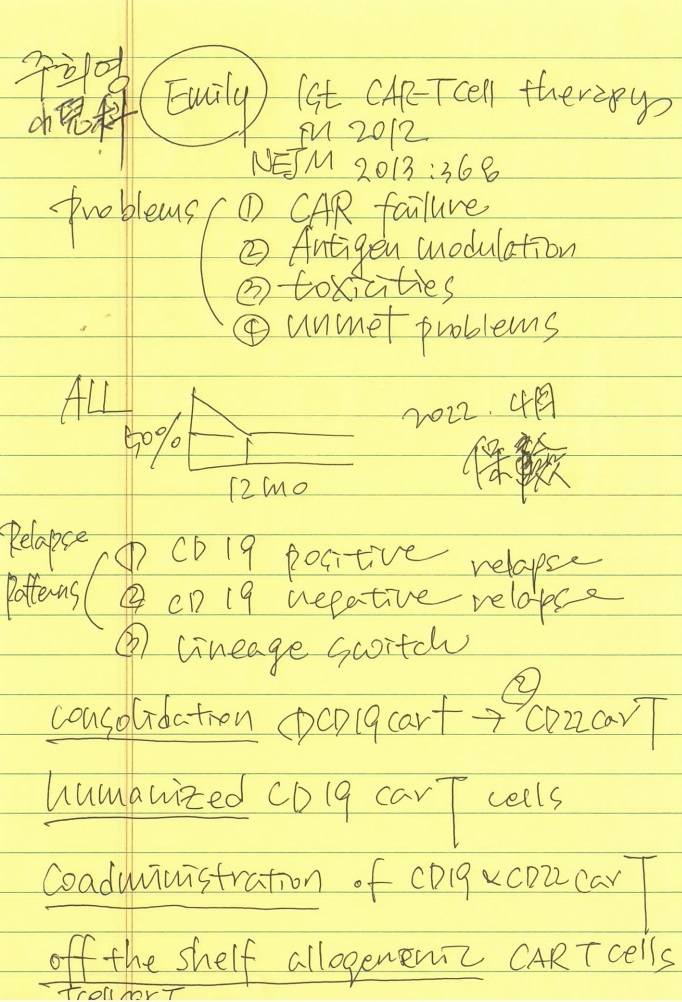 주희영
小兒科
Emily 1st CAR-T cell therapy
in 2012
NEJM 2013:368
problems ① CAR failure
② Antigen modulation
③ toxicities
④ unmet problems
ALL
50%
12 mo
2022. 4月
保險
Relapse patterns
① CD 19 positive relapse
② CD 19 negative relapse
③ Lineage switch
consolidation ① CD19 car T → ② CD22 car T
humanized CD 19 car T cells
Coadministration of CD19 & CD22 car T
off the shelf allogeneneic CAR T cells